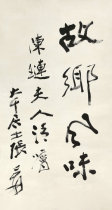 故鄉風味
陳緹夫人法囑
大千居士張爰